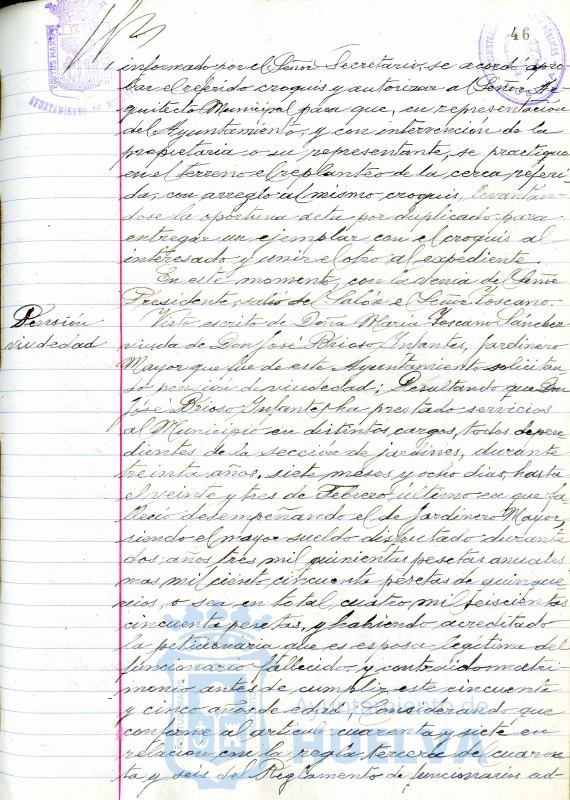 46
informado por el Señor Secretario, se acordó apro-
bar el referido croquis y autorizar al Señor Ar-
quitecto Municipal para que, en representación
del Ayuntamiento, y con intervención de la
propietaria o su representante, se practique
en el terreno el replanteo de la cerca referi-
da, con arreglo al mismo croquis, levantán-
dose la oportuna acta por duplicado para
entregar un ejemplar con el croquis al
interesado y unir el otro al expediente.
En este momento, con la venia del Señor
Presidente, salió del Salón el Señor Toscano.-
Pensión
viudedad
Visto escrito de Doña María Toscano Sánchez
viuda de Don José Brioso Infantes, Jardinero
Mayor que fue de este Ayuntamiento solicitan-
do pensión de viudedad; Resultando que Don
José Brioso Infantes, ha prestado servicios
al Municipio en distintos cargos, todos depen-
dientes de la sección de jardines, durante
treinta años, siete meses y ocho días, hasta
el veinte y tres de Febrero último en que fa-
lleció desempeñando el de Jardinero Mayor,
siendo el mayor sueldo disfrutado durante
dos años tres mil quinientas pesetas anuales
mas mil ciento cincuenta pesetas de quinque-
nios, o sea en total, cuatro mil seiscientas
cincuenta pesetas, y habiendo acreditado
la peticionaria que es esposa legítima del
funcionario fallecido y contraido matri-
monio antes de cumplir este cincuenta
y cinco años de edad; Considerando que
conforme al artículo cuarenta y siete en
relación con la regla tercera del cuaren-
ta y seis del Reglamento de funcionarios ad-
Ayuntamiento de
HUELVA